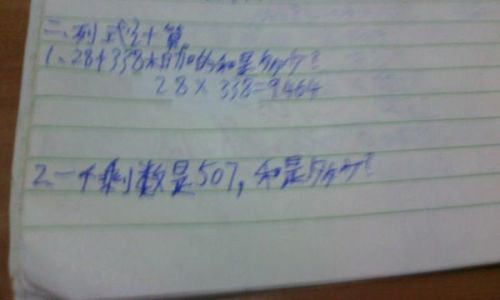 二、列式计算
1、28个338相加的和是多少?
28×338=9464
2.一个剩数是507,和是多少?